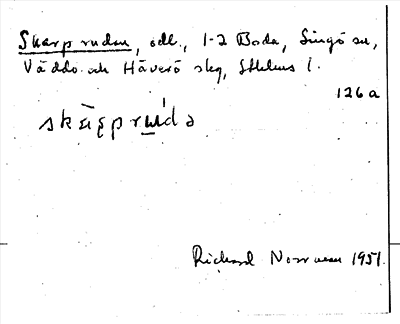 Skarprudan, odl., 1-2 Boda, Singö sn,
Väddö och Häverö skg, Sthlms l.
126a
Richard Norrman 1951.